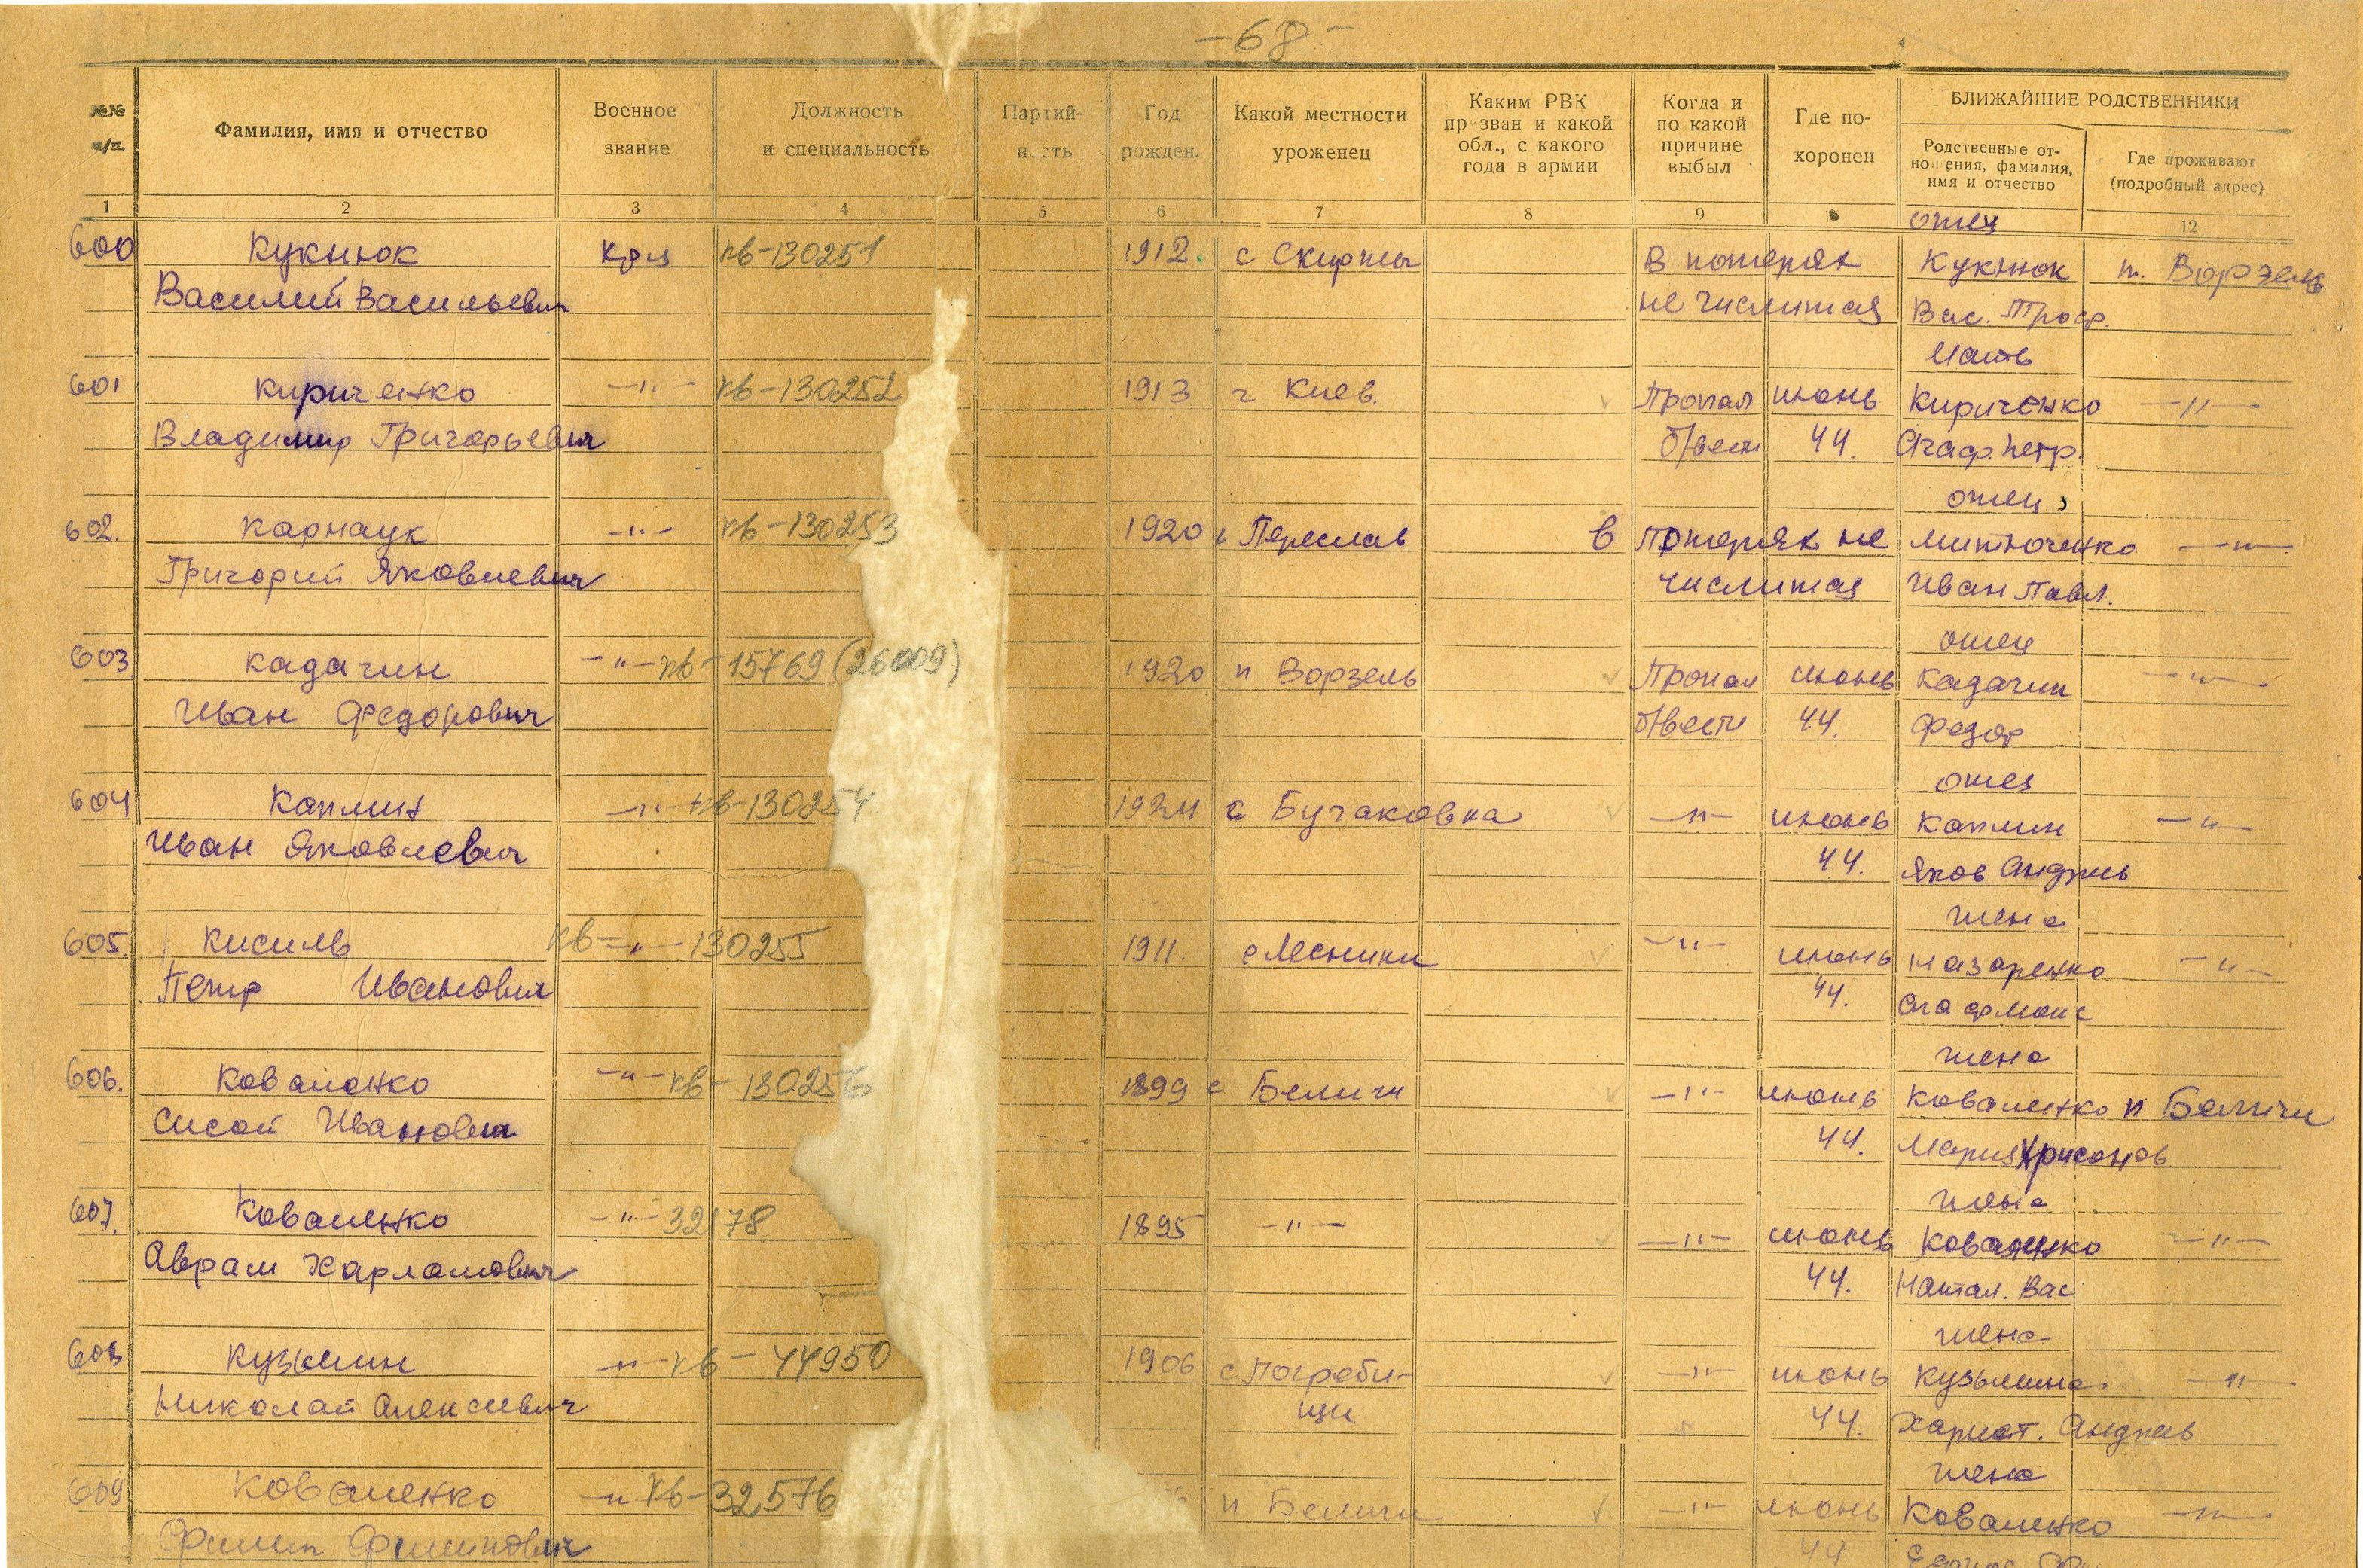 -68-
№№ п/п.
Фамилия, имя и отчество
Военное звание
Должность и специальность
Партий- н сть
Год рожден.
Какой местности уроженец
Каким РВК пр зван и какой обл., с какого года в армии
Когда и по какой причине выбыл
Где по- хоронен
БЛИЖАЙШИЕ РОДСТВЕННИКИ
Родственные от- но ения, фамилия, имя и отчество
Где проживают (подробный адрес)
1 2 3 4 5 6 7 8 9 12
отец
600 Кукнюк кр-ц кв-130251 1912. с В потерях Кукнюк п. Ворзель
Василий Васильевич не числится Вас. Троф.
мать
601 Кириченко -"- кв-130252 1913 г Киев. Пропал июнь Кириченко -"-
Владимир Григорьевич б/вести 44. Агаф. Петр.
отец
602. Карнаук -"- кв-130253 1920 Переслав в потерях не Митюченко -"-
Григорий Яковлевич числится Иван Павл.
отец
603 Кадачин -"- кв-15769 (26009) 1920 п Ворзель Пропал июнь Кадачин -"-
Иван Федорович б/вести 44. Федор
отец
604 Каплин -"- кв-130254 1924 с Бучаковка -"- июнь Каплин -"-
Иван Яковлевич 44. Яков Андреев
жена
605. Кисиль кв-"-130255 1911. с Лесники -"- июнь Назаренко -"-
Петр Иванович 44.
жена
606. Коваленко -"- кв-130256 1899 с Беличи -"- июнь Коваленко п Беличи
Сисой Иванович 44. Мария
жена
607. Коваленко -"- 32178 1895 -"- -"- июнь Коваленко -"-
Аврам Харламович 44. Натал. Вас
жена
608 Кузьмин -"- кв-44950 1906 с Погреби- -"- июнь Кузьмина -"-
Николай Алексеевич щи 44. Андреев
жена
609 Коваленко -"- кв-32576 п Беличи -"- июнь Коваленко -"-
Филип Филипович 44